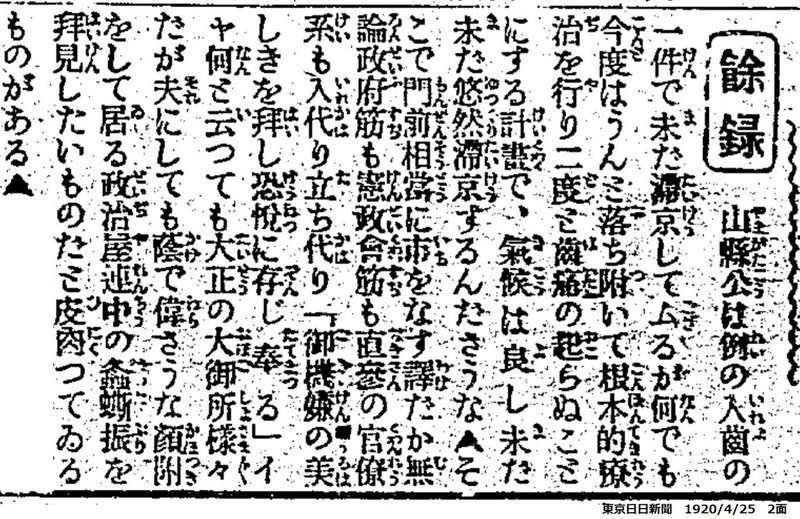 餘録
山縣公は例の入齒の
一件で未だ滯京してムるが何でも
今度はうんと落ち附いて根本的療
治を行り二度と齒痛の起らぬこと
にする計畫で、氣候は良し未だ
未だ悠然滯京するんださうな▲そ
こで門前相當に市をなす譯だが無
論政府筋も憲政會筋も直參の官僚
系も入代り立ち代り「御機嫌の美
しきを拜し恐悅に存じ奉る」イ
ヤ何と云つても大正の大御所樣々
だが夫にしても蔭で偉さうな顏附
をして居る政治屋連中の螽蟖振を
拜見したいものだと皮肉つてゐる
ものがある▲
東京日日新聞 1920/4/25 2面